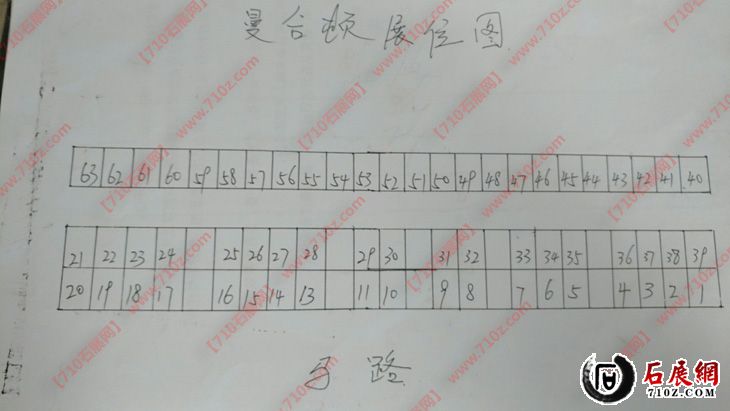 曼合顿展位图
63 62 61 60 59 58 57 56 55 54 53 52 51 50 49 48 47 46 45 44 43 42 41 40
21 22 23 24 25 26 27 28 29 30 31 32 33 34 35 36 37 38 39
20 19 18 17 16 15 14 13 11 10 9 8 7 6 5 4 3 2 1
路
石展網
710Z.COM
【710石展网】www.710z.com